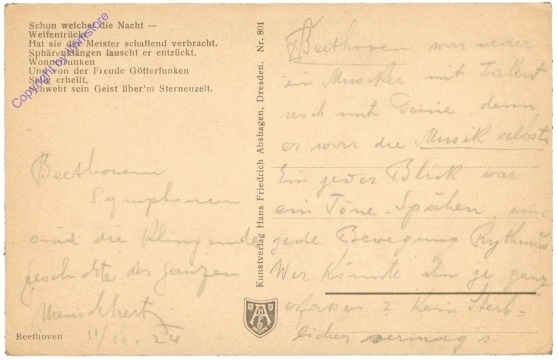 Schon weicht die Nacht —
Weltentrückt
Hat sie der Meister schaffend verbracht.
Sphärenklängen lauscht er entzückt.
Wonnetrunken
Und von der Freude Götterfunken
Selig erhellt,
Schwebt sein Geist über'm Sternenzelt.
Copyright by kunstore
Beethovens
Symphonien
sind die klingende
Geschichte der ganzen
Menschheit
11/10. 24
Beethoven
Kunstverlag Hans Friedrich Abshagen, Dresden. Nr. 801
Beethoven war weder
ein Musiker mit Talent
noch mit Genie, denn
er war die Musik selbst.
Ein jeder Blick war
ein Töne-Spähen, eine
jede Bewegung Rhythmus
Wer könnte ihn je ganz
erfassen? Kein Sterb-
licher vermag's